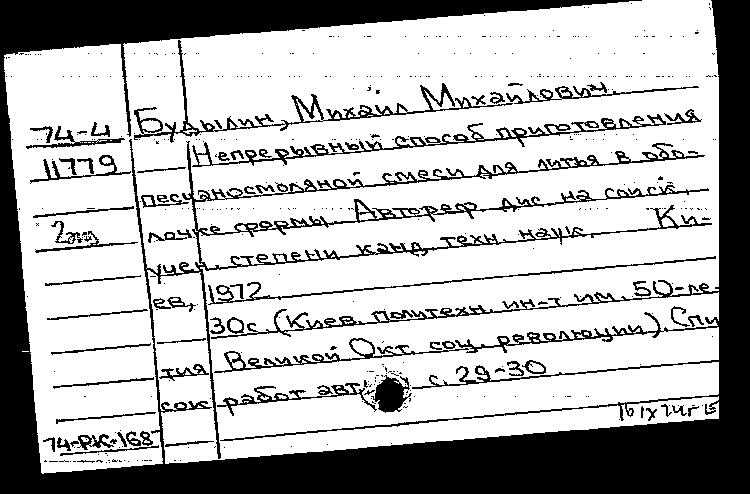 74-4
11779
2 экз
Будылин, Михаил Михайлович.
Непрерывный способ приготовления
песчаносмоляной смеси для литья в обо-
лочке формы. Автореф. дис. на соиск.
учен. степени канд. техн. наук. Ки-
ев, 1972.
30с. (Киев. политехн. ин-т им. 50-ле-
тия Великой Окт. соц. революции). Спи
сок работ авт. с. 29-30
74-РК-168